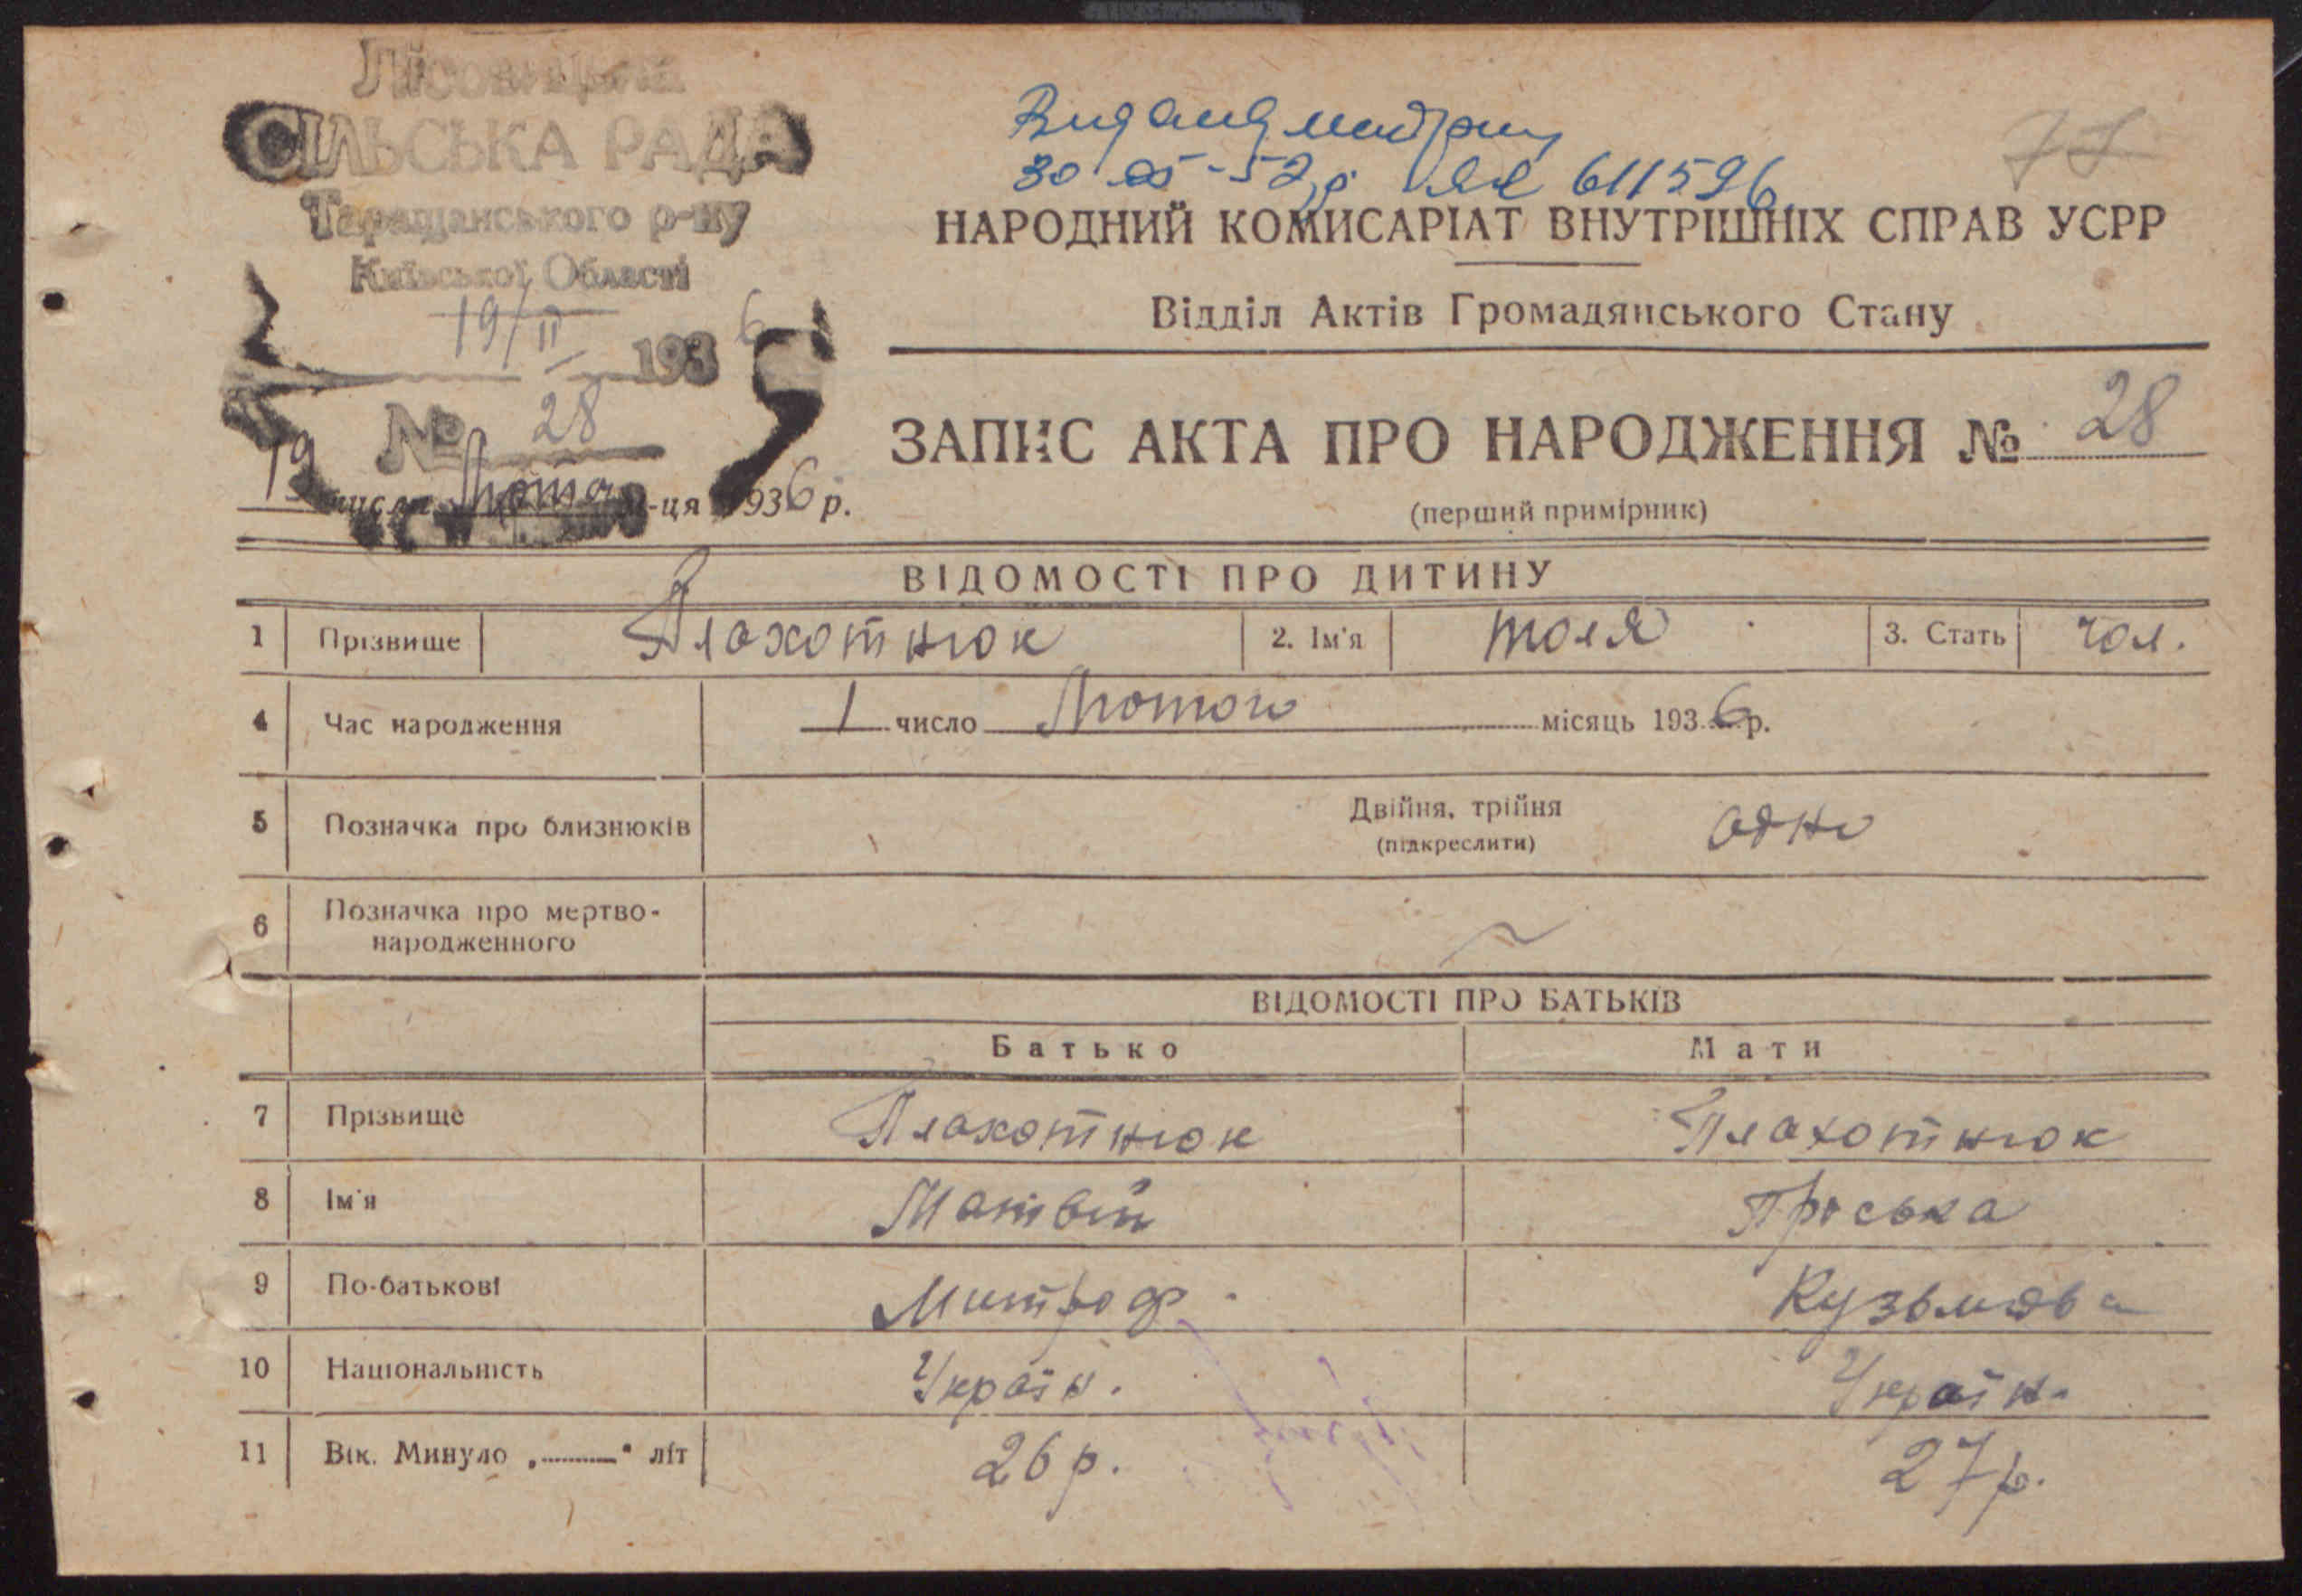 Лісовицька
СІЛЬСЬКА РАДА
Таращанського р-ну
Київської Області
19/II 1936
№ 28
19 числа Лютого м-ця 1936 р.
30 05-52 р 611596
77
НАРОДНИЙ КОМИСАРІАТ ВНУТРІШНІХ СПРАВ УСРР
Відділ Актів Громадянського Стану
ЗАПИС АКТА ПРО НАРОДЖЕННЯ № 28
(перший примірник)
ВІДОМОСТІ ПРО ДИТИНУ
1 Прізвище Плахотнюк 2. Ім'я Толя 3. Стать чол.
4 Час народження 1 число Лютого місяць 1936 р.
5 Позначка про близнюків Двійня, трійня (підкреслити) одно
6 Позначка про мертво-
народженного ~
ВІДОМОСТІ ПРО БАТЬКІВ
Батько Мати
7 Прізвище Плахотнюк Плахотнюк
8 Ім'я Матвій Проська
9 По-батькові Митроф. Кузьмова
10 Національність Україн. Україн.
11 Вік. Минуло „ " літ 26 р. 27 р.